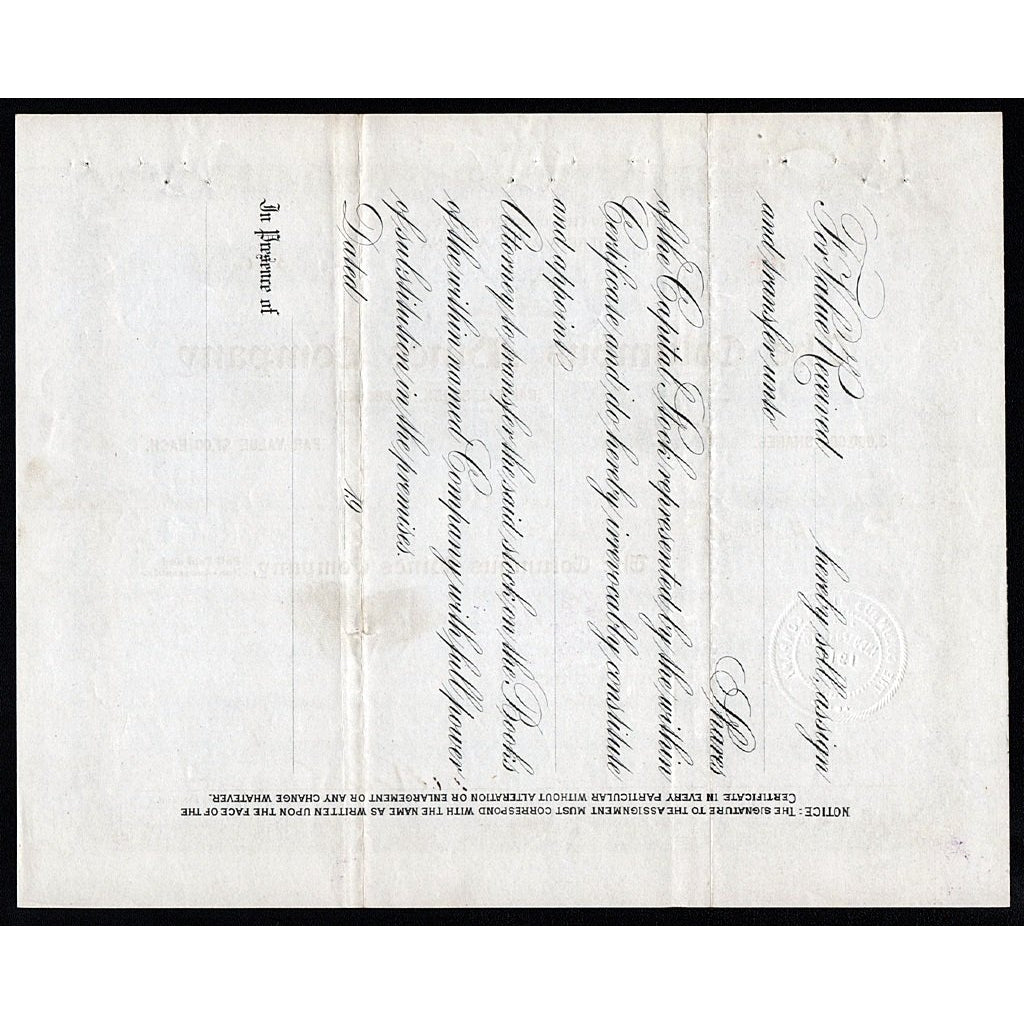 For Value Received hereby sell, assign
and transfer unto
Shares
of the Capital Stock represented by the within
Certificate and do hereby irrevocably constitute
and appoint
Attorney to transfer the said stock on the Books
of the within named Company with full power
of substitution in the premises.
Dated 19
In Presence of
NOTICE: THE SIGNATURE TO THE ASSIGNMENT MUST CORRESPOND WITH THE NAME AS WRITTEN UPON THE FACE OF THE
CERTIFICATE IN EVERY PARTICULAR WITHOUT ALTERATION OR ENLARGEMENT OR ANY CHANGE WHATEVER.